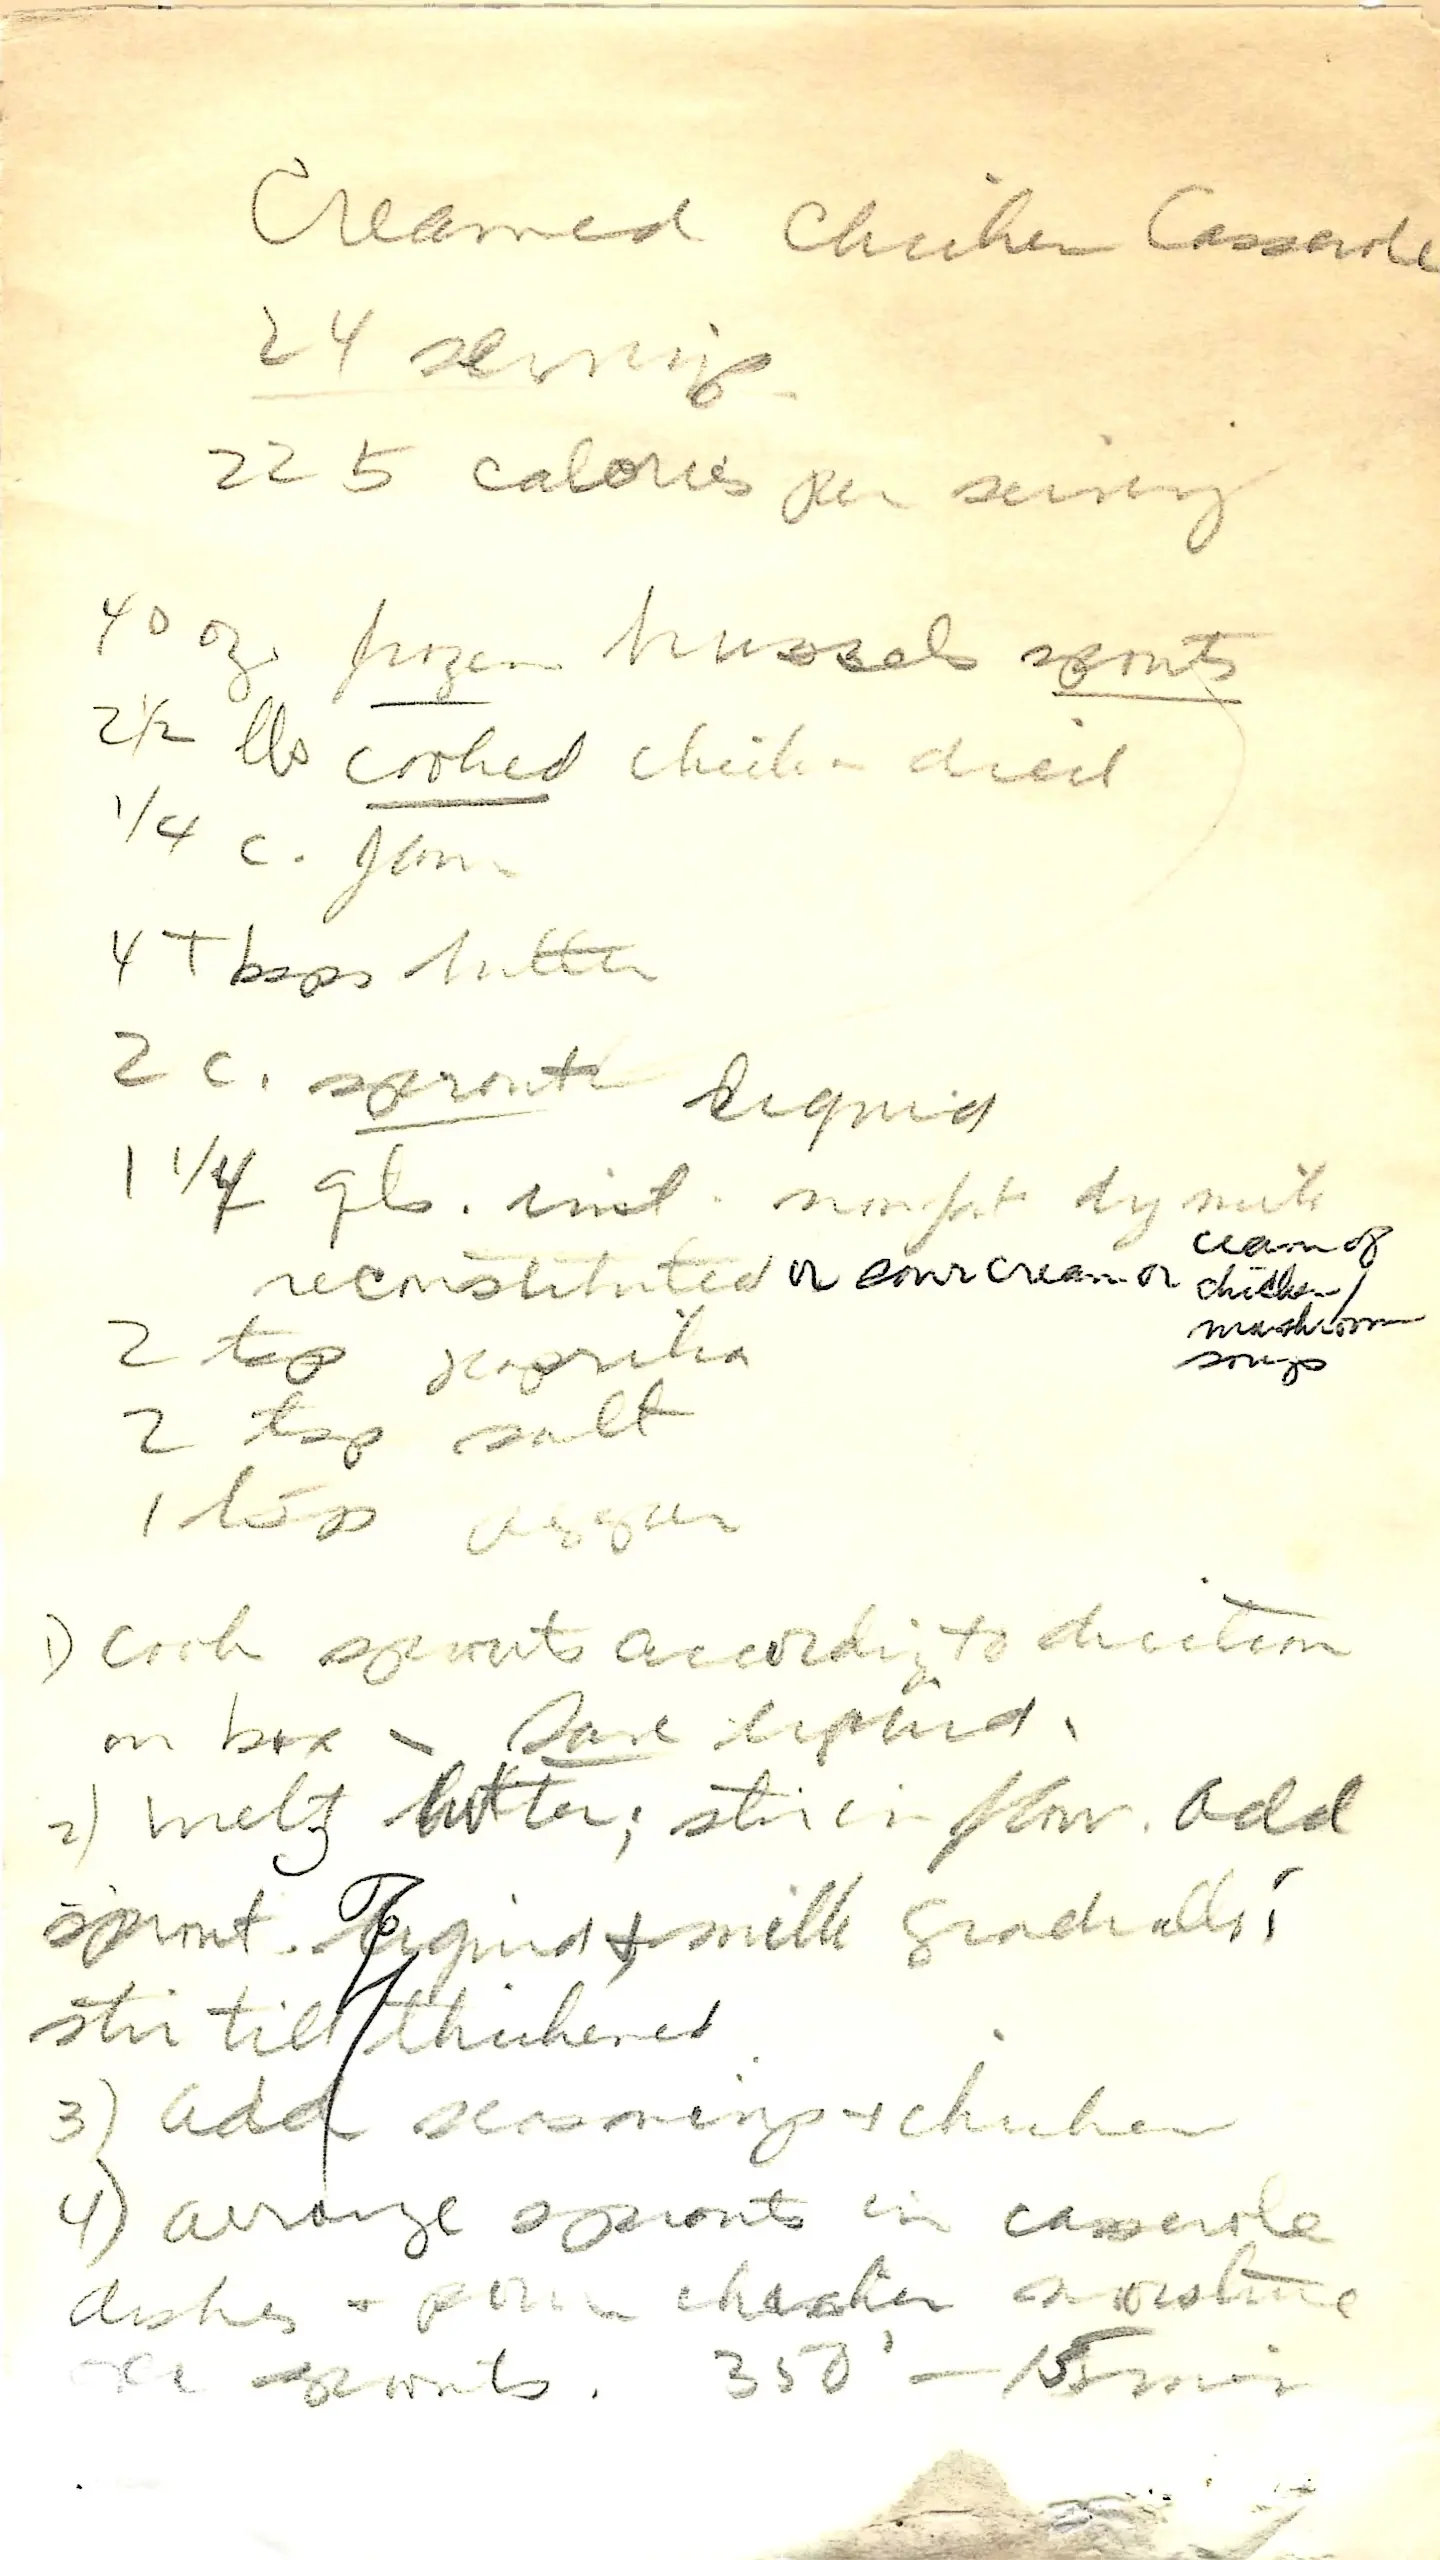 Creamed Chicken Casserole
24 servings
225 calories per serving
40 oz. frozen brussels sprouts
2 1/2 lbs cooked chicken diced
1/4 c. flour
4 Tbsps butter
2 c. sprouts liquid
1 1/4 qts. inst. nonfat dry milk
reconstituted or sour cream or cream of
chicken/
mushroom
soups
2 tsp paprika
2 tsp salt
1 tsp pepper
1) Cook sprouts according to direction
on box - Save liquid.
2) melt butter; stir in flour. Add
sprout liquid + milk gradually;
stir till thickened
3) Add seasonings + chicken
4) arrange sprouts in casserole
dishes + pour chicken mixture
over sprouts. 350° — 15 min